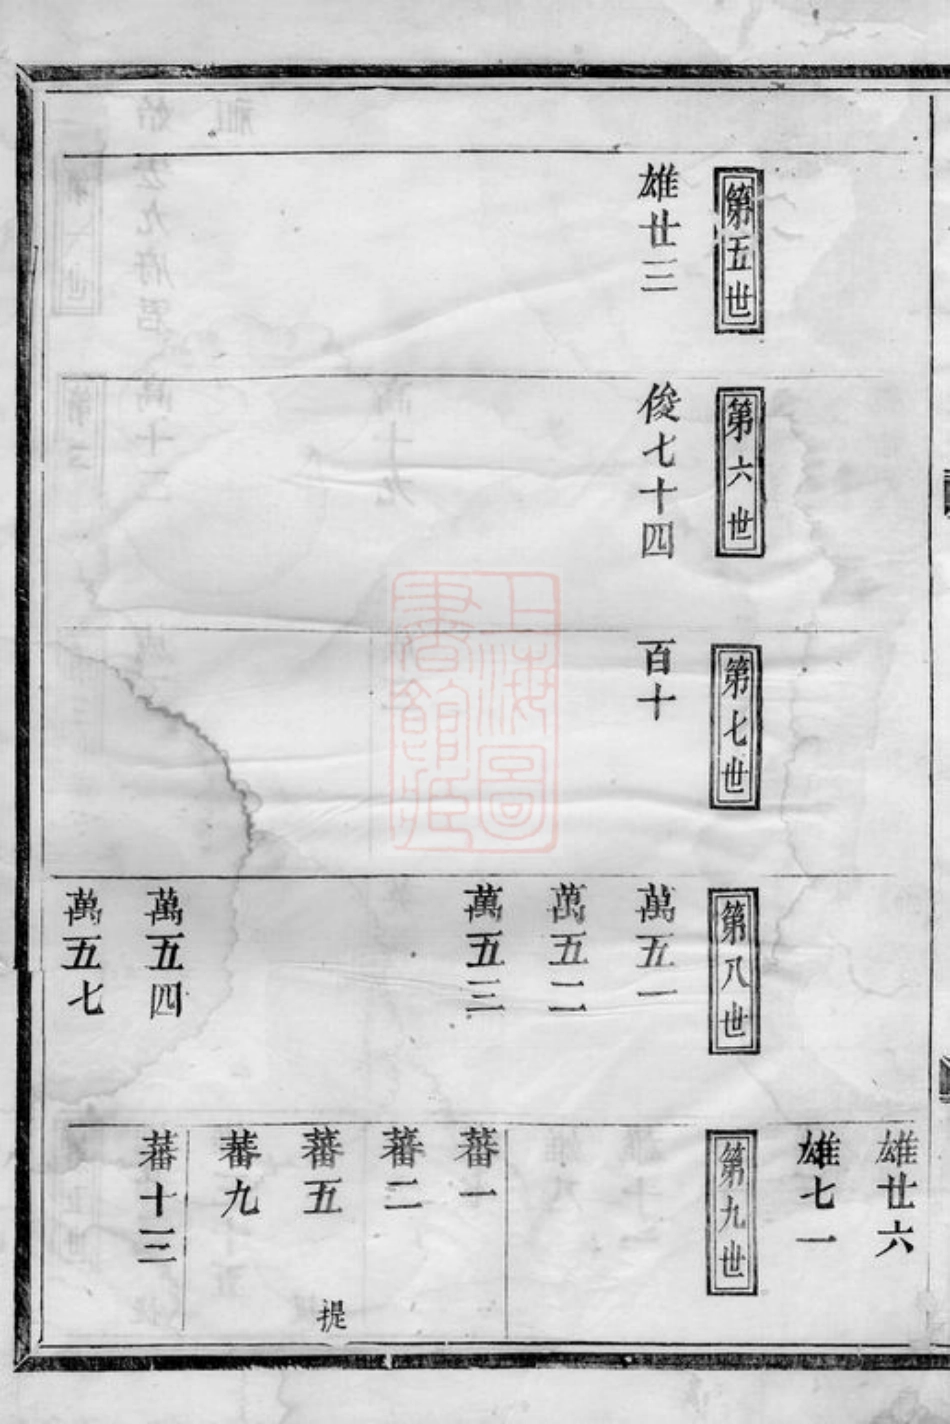 雄廿六
雄七一
第五世
雄廿三
第六世
俊七十四
第七世
百十
第八世
萬五一
萬五二
萬五三
萬五四
萬五七
第九世
蕃一
蕃二
蕃五
提
蕃九
蕃十三
上海圖書館藏